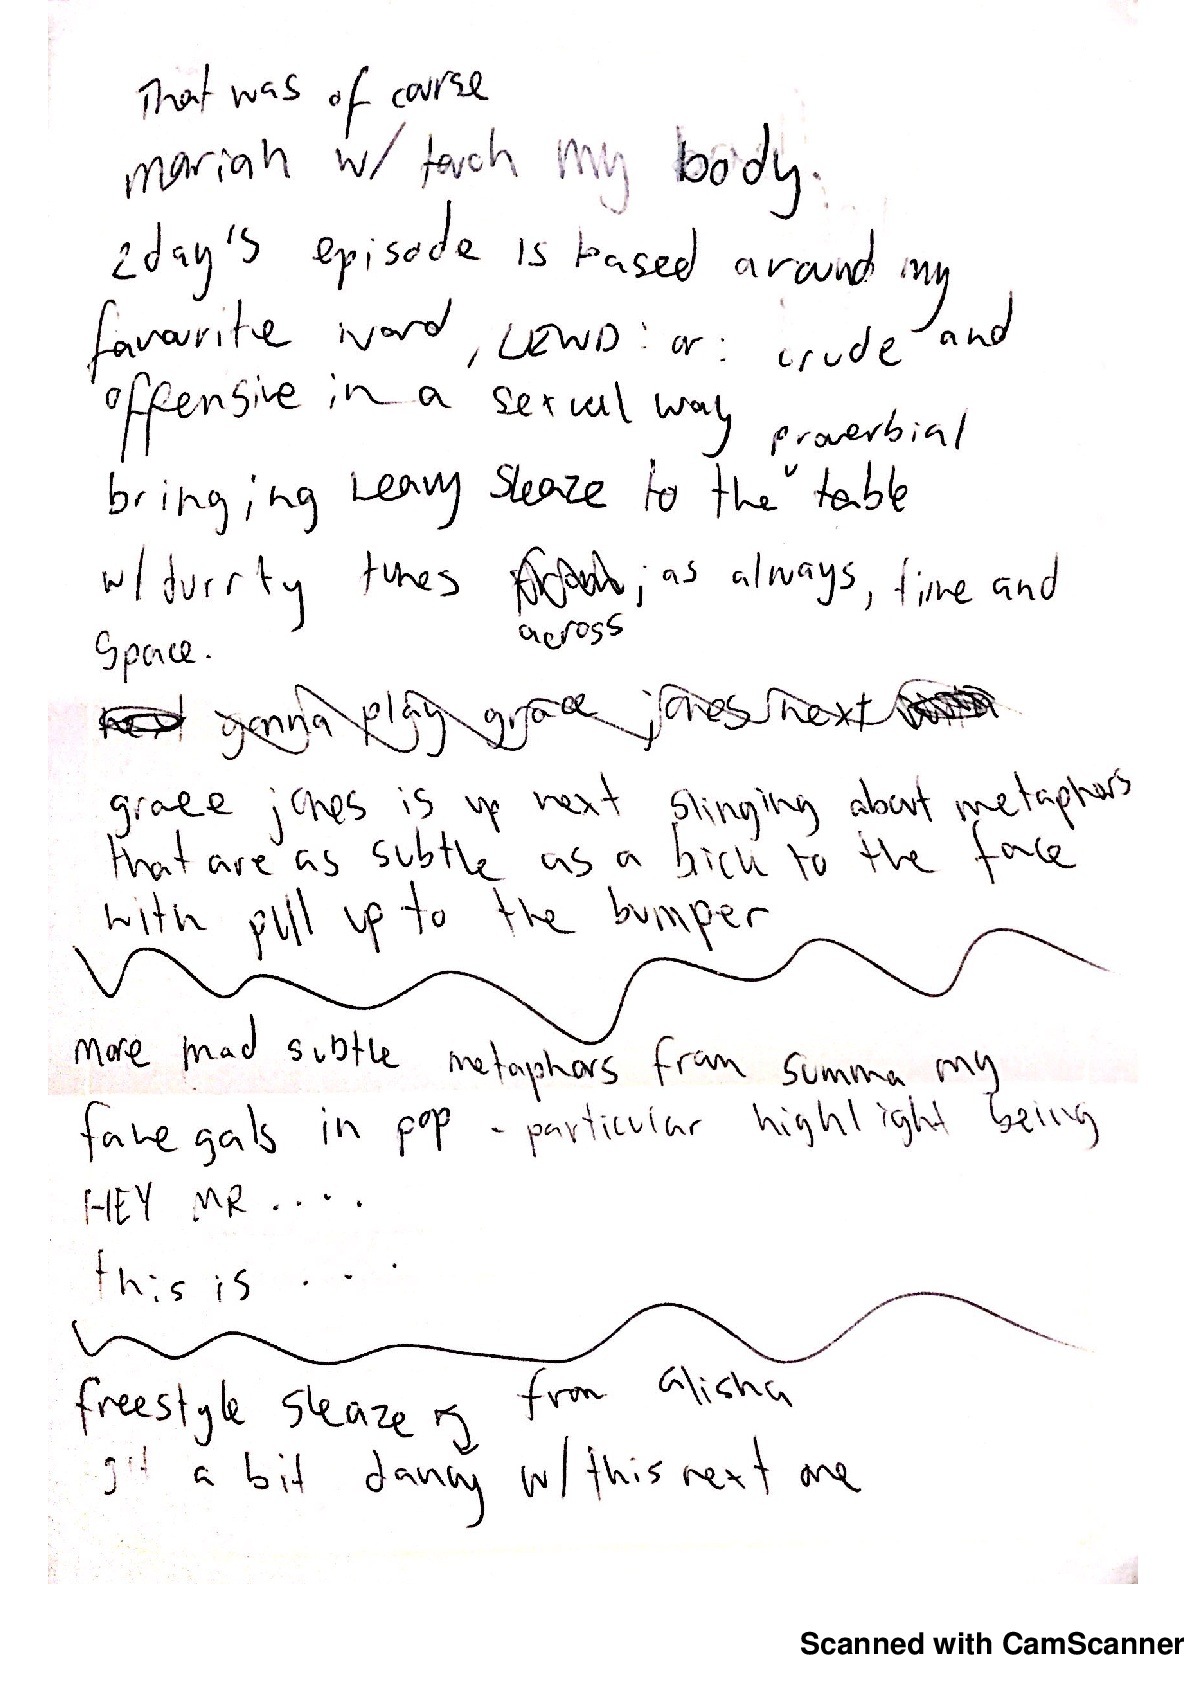 That was of course
mariah w/ touch my body.
2day's episode is based around my
favourite word, LEWD: or: crude and
offensive in a sexual way
proverbial
bringing heavy sleaze to the ˅ table
w/ durrty tunes ; as always, time and
across
space.
gonna play grace jones next
grace jones is up next slinging about metaphors
that are as subtle as a brick to the face
with pull up to the bumper
more mad subtle metaphors from summa my
fave gals in pop - particular highlight being
HEY MR ....
this is ...
freestyle sleaze from alisha
get a bit dancy w/ this next one
Scanned with CamScanner